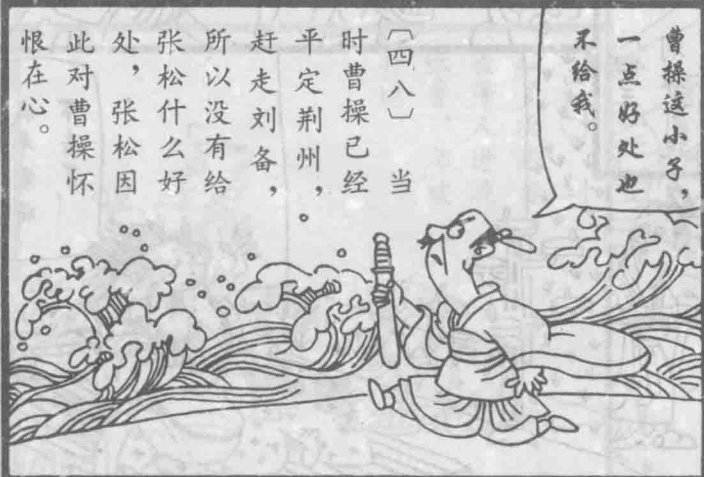 曹操这小子，
一点好处也
不给我。
〔四八〕 当
时曹操已经
平定荆州，
赶走刘备，
所以没有给
张松什么好
处，张松因
此对曹操怀
恨在心。